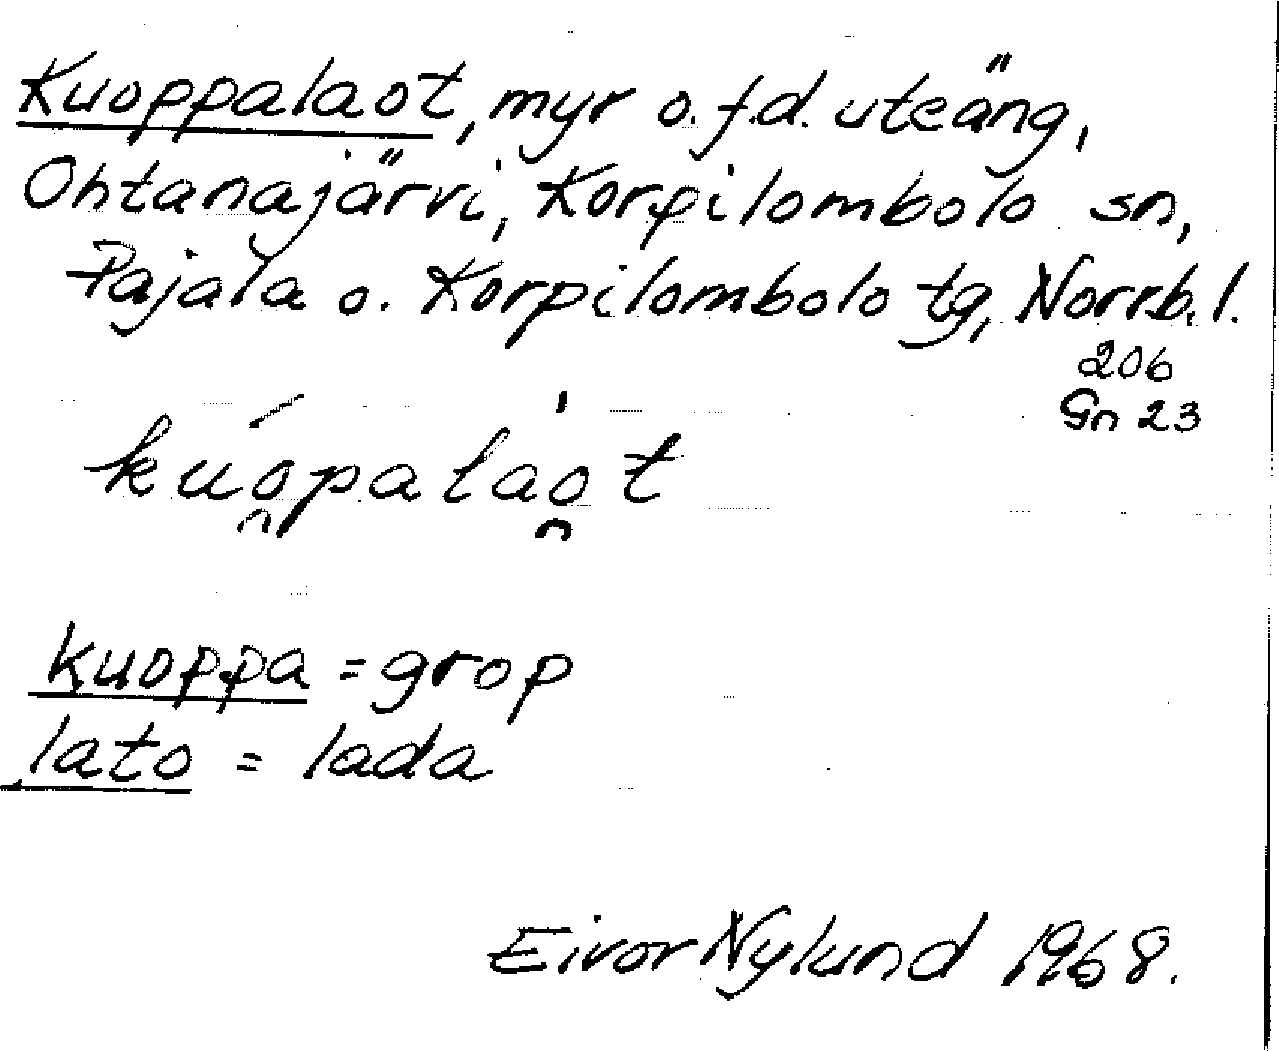 Kuoppalaot, myr o. f.d. uteäng,
Ohtanajärvi, Korpilombolo sn,
Pajala o. Korpilombolo tg, Norrb. l.
206
Gn 23
kúo̯palao̯̍t
kuoppa = grop
lato = lada
Eivor Nylund 1968.